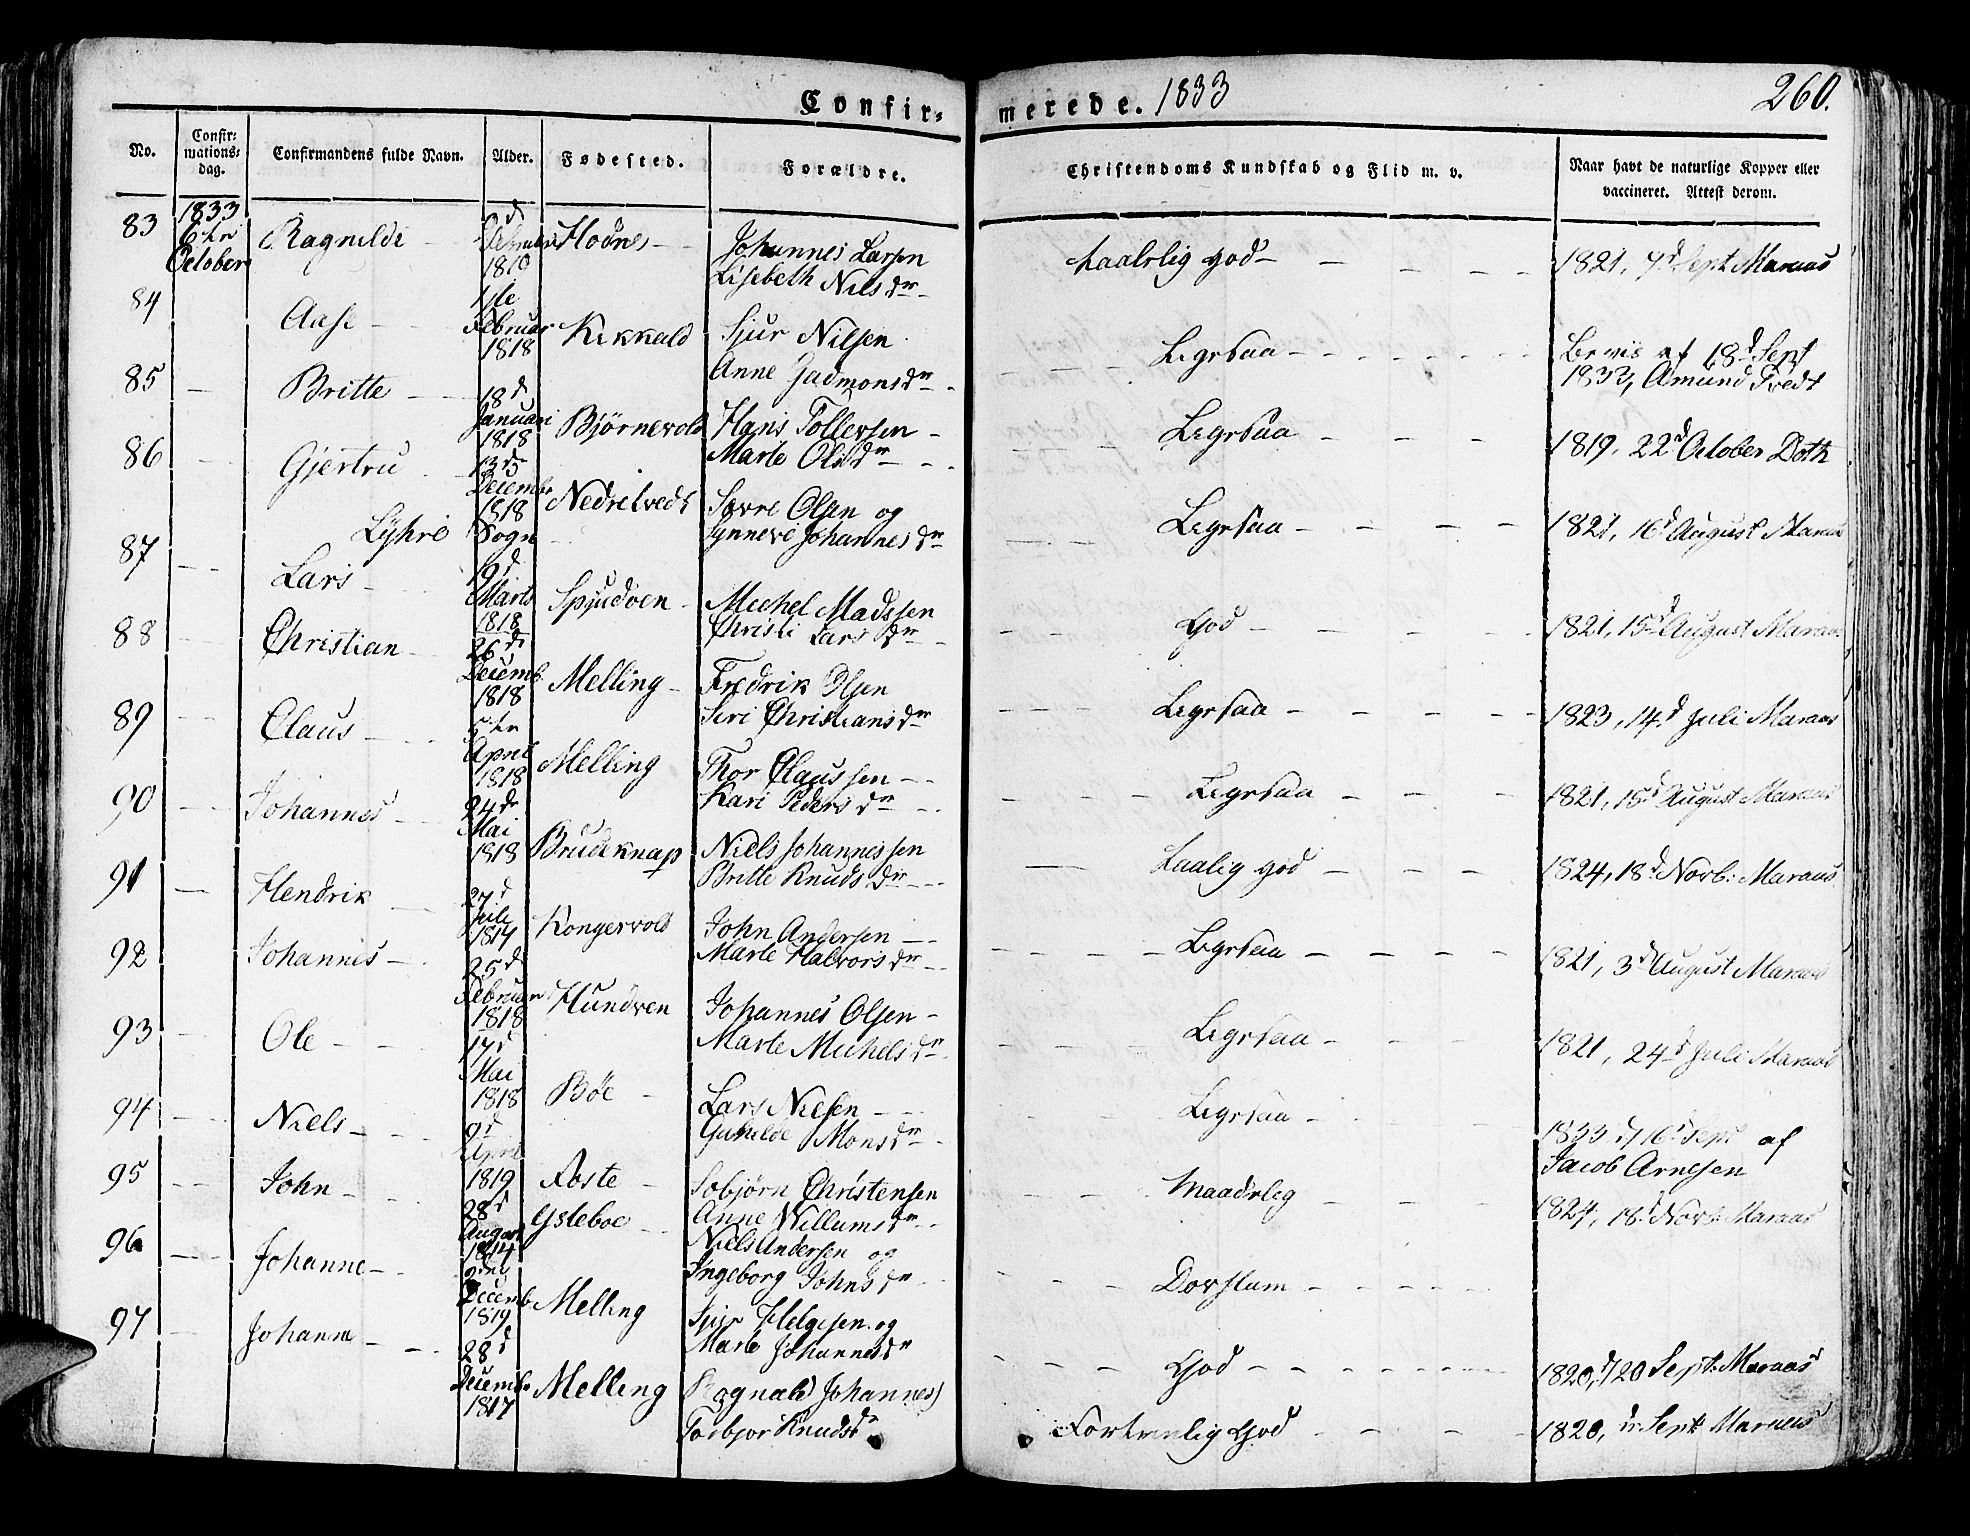 Confir= merede. 1833 260.
No. Confir: mations: dag. Confirmandens fulde Navn. Alder. Fødested. Forældre. Christendoms Kundskab og Flid m. v. Naar havt de naturlige Kopper eller vaccineret. Attest derom.
83 1833 6te October Ragnilde 1819 Hodnes Johannes Larsen Lisebeth Nils Dr god 1821, 7d Sept Maraas
84 Aase 1ste Februar 1818 Kikkald Sjur Nilsen Anne Dr Legesaa Bevis af 18d Sept 1833, Amund Tredt
85 Britte 18d Januari 1818 Bjørnevold Hans Tollefsen Marte Ols Dr Legesaa 1819, 22d October Doth
86 Gjertru 13d Decembr 1818 Nedretvedt Sovre Olsen og Synneve Johannes Dr Legesaa 1821, 16d August Maraas
Lyhre Sogn
87 Lars 19d Marts 1818 Spjudoen Michel Madssen Christi Lars Dr God 1821, 15d August Maraas
88 Christian 26de Decemb 1818 Melling Fredrik Olsen Siri Christians Dr Legesaa 1823, 14d Juli Maraas
89 Claus 5te April 1818 Melling Thor Claussen Kari Peders Dr Legesaa 1821, 15d August Maraas
90 Johannes 24de Mai 1818 Brudeknap Niels Johannessen Britte Knuds Dr Taalig god 1824, 18d Novb: Maraas
91 Hendrik 27d Juli 1817 Kongervold John Andersen Marte Halvors Dr Legesaa 1821, 3d August Maraas
92 Johannes 25d Februar 1818 Hundven Johannes Olsen Marte Michels Dr Legesaa 1821, 24d Juli Maraas
93 Ole 17d Mai 1818 Böe Lars Nilsen Gunilde Mons Dr Legesaa 1833 d/16 Sept af Jacob Arnesen
94 Niels 9d April 1819 Røste Sobjörn Christensen Anne Willums Dr Maadelig 1824, 18d Novb: Maraas
95 John 28d August 1814 Ysteboe Niels Andersen og Ingeborg Johns Dr
96 Johanne 2den Decemb 1819 Melling Sjur Helgesen og Marte Johannes Dr God 1820, d/20 Sept: Maraas
97 Johanne 28d Decemb 1817 Melling Rognald Johannes) Torbjor Knuds Dr God 1820, Sept Maraas